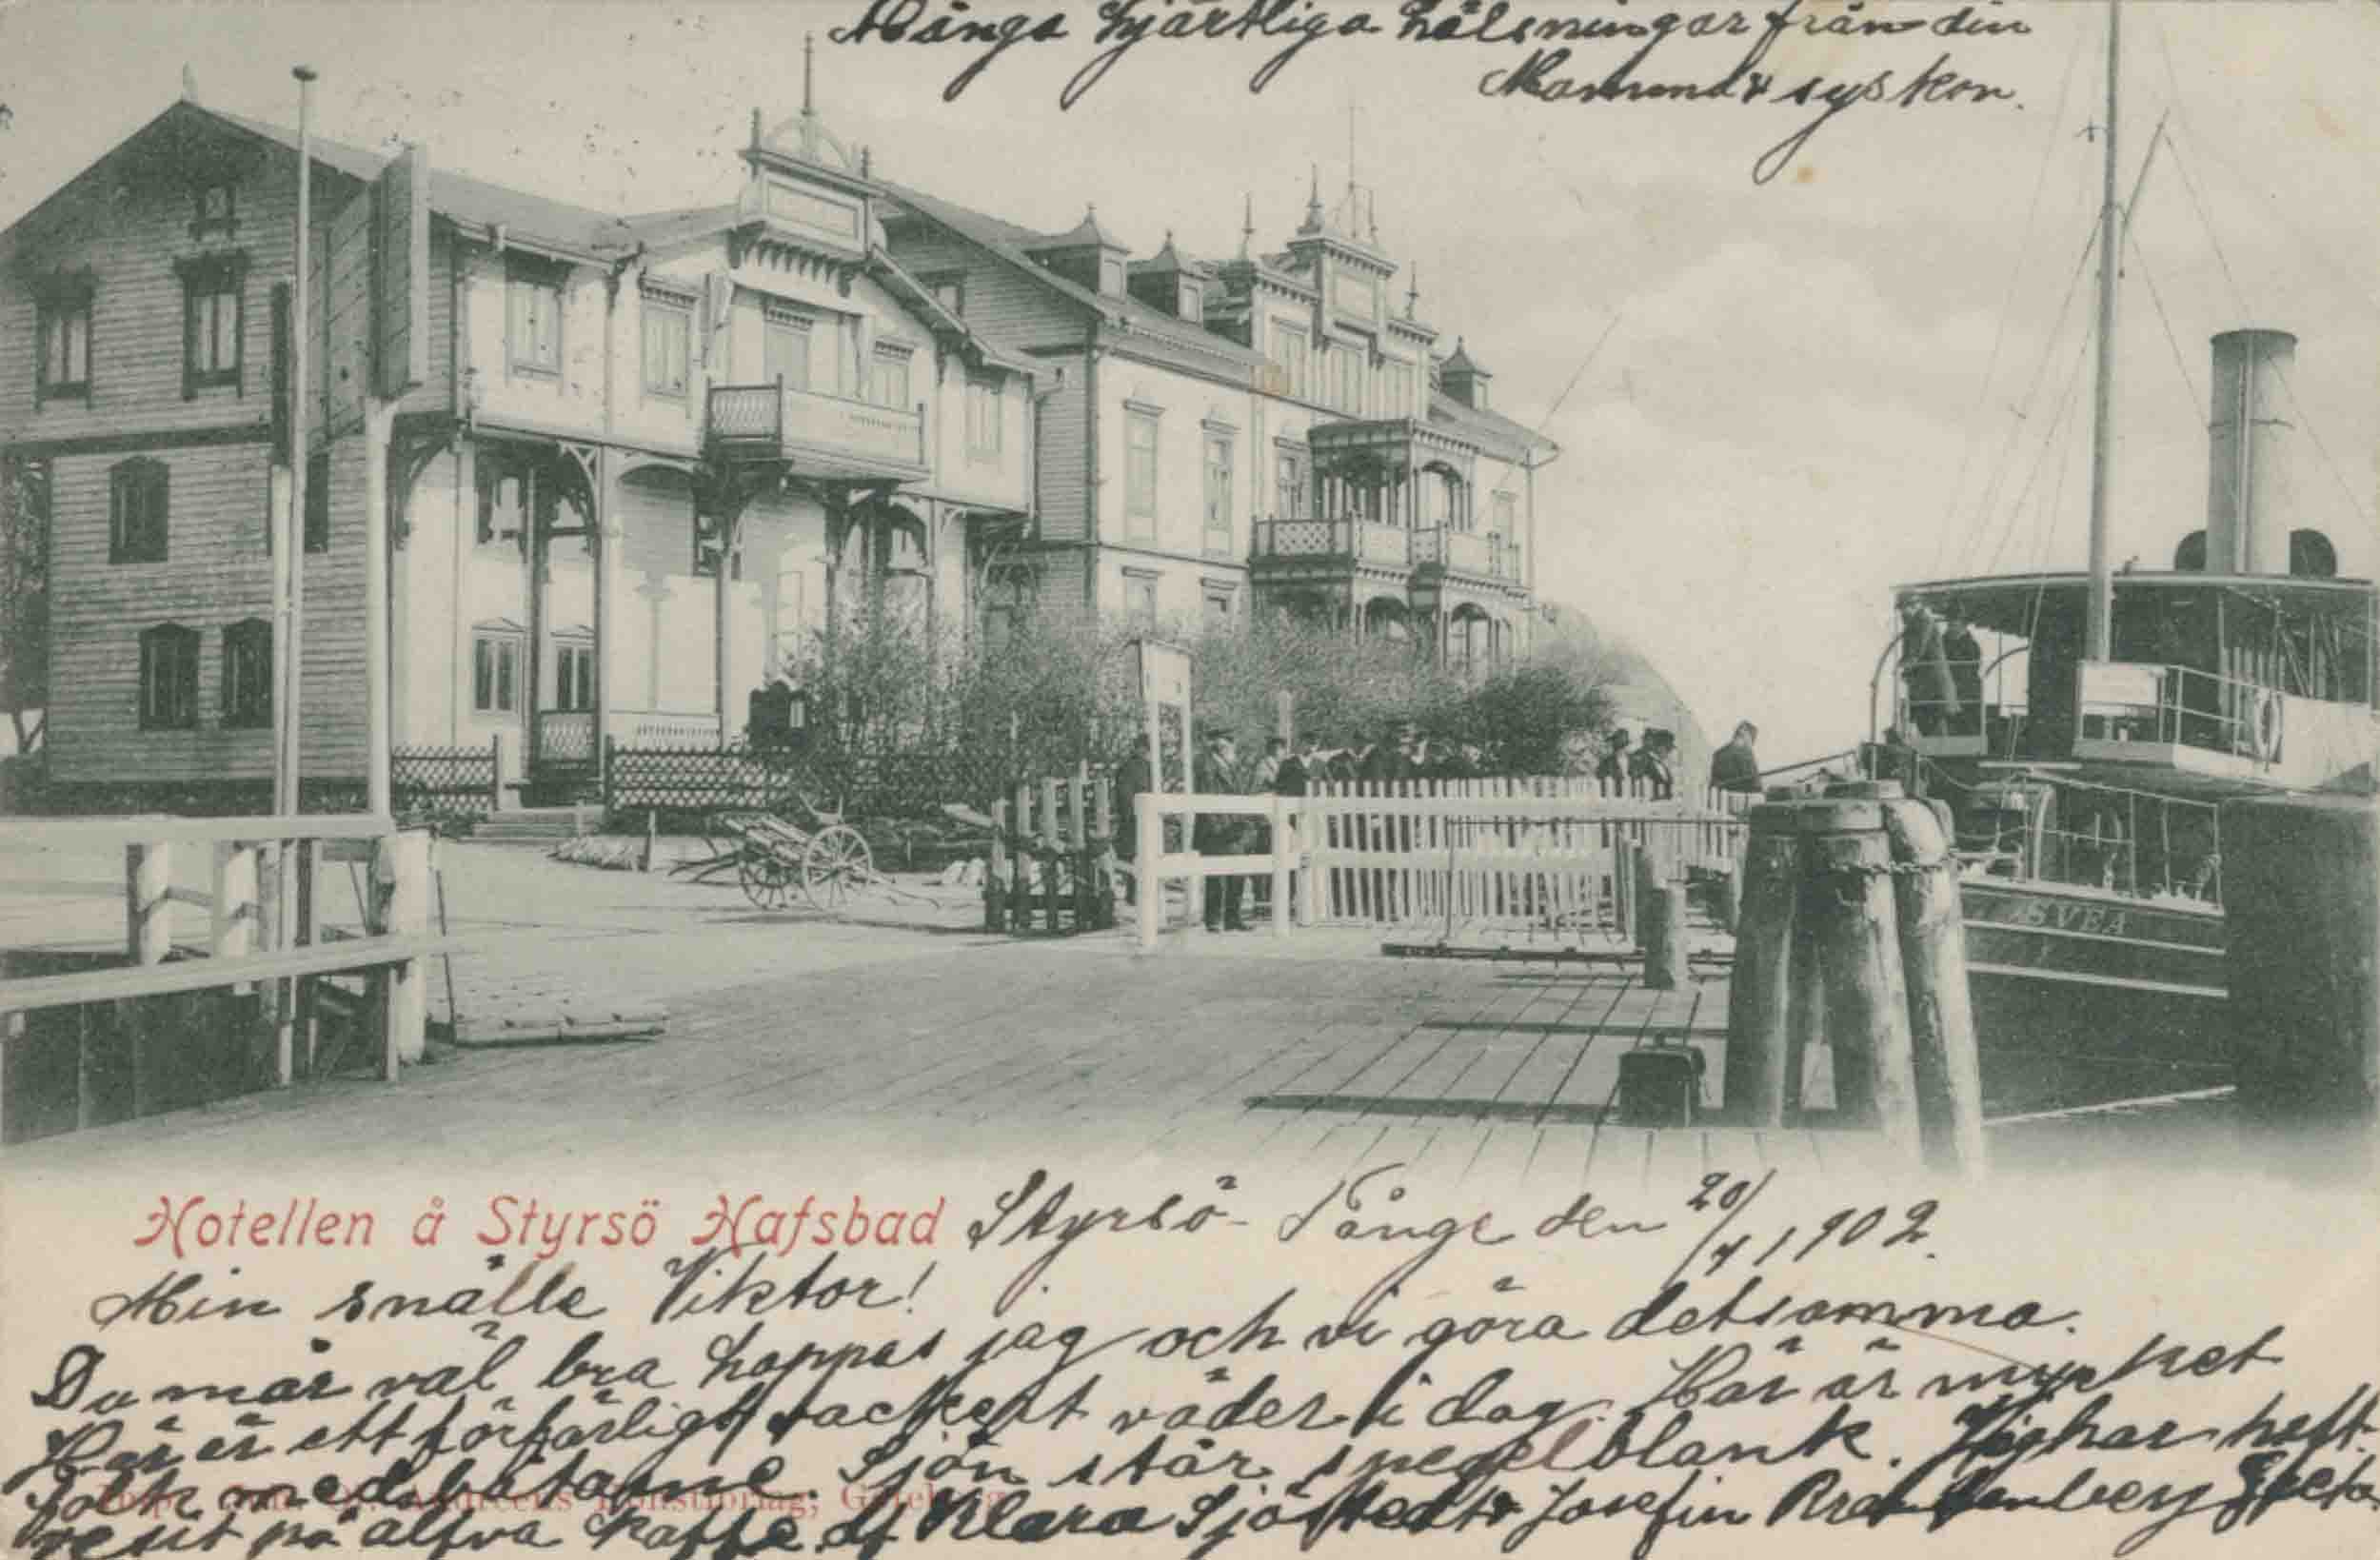 Många hjärtliga hälsningar från din
Mamma & syskon.
SVEA
Hotellen å Styrsö Hafsbad Styrsö-Tånge den 20/7 1902.
Min snälle Viktor!
Du mår väl bra hoppas jag och vi göra detsamma.
Här är ett förfärligt vackert väder i dag. Här är mycket
folk med båtarne. Sjön står spegelblank. Jag har haft
visit på alfva kaffe af Klara Sjöstedt & Josefin